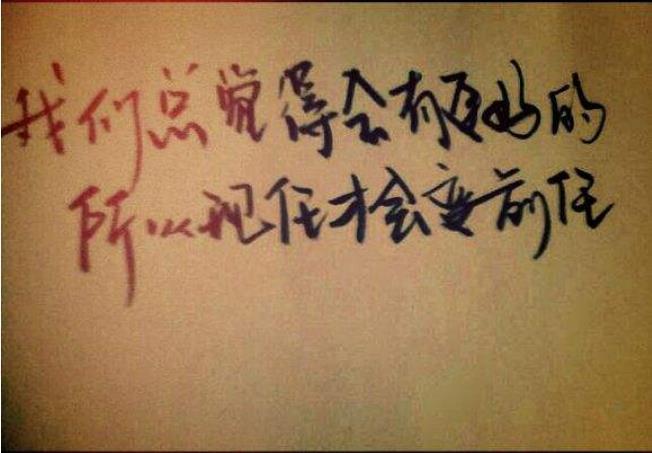 我们总觉得会有更好的
所以现任才会变前任